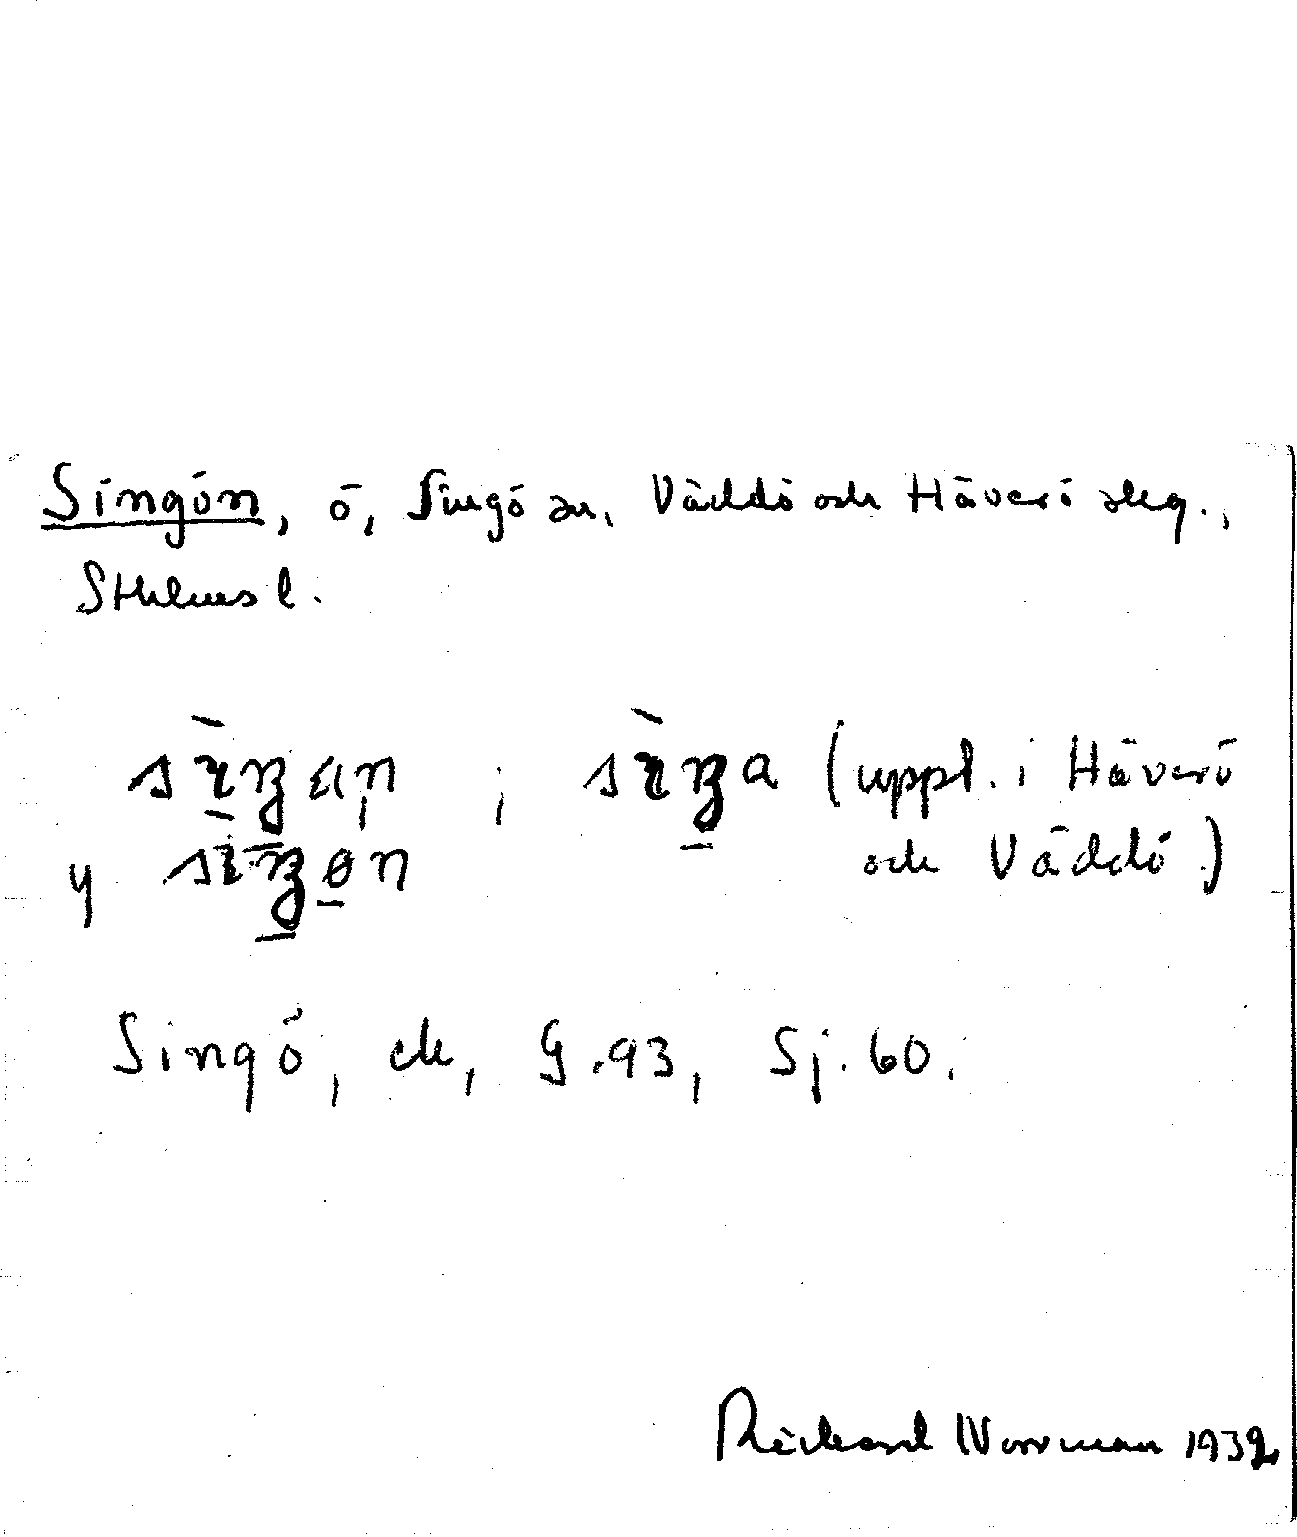 Singön, ö, Singö sn, Väddö och Häverö skg.,
Sthlms l.
(uppl. i Häverö
y och Väddö)
Singö, ek, G.93, Sj.60.
Rickard Norrman 1932